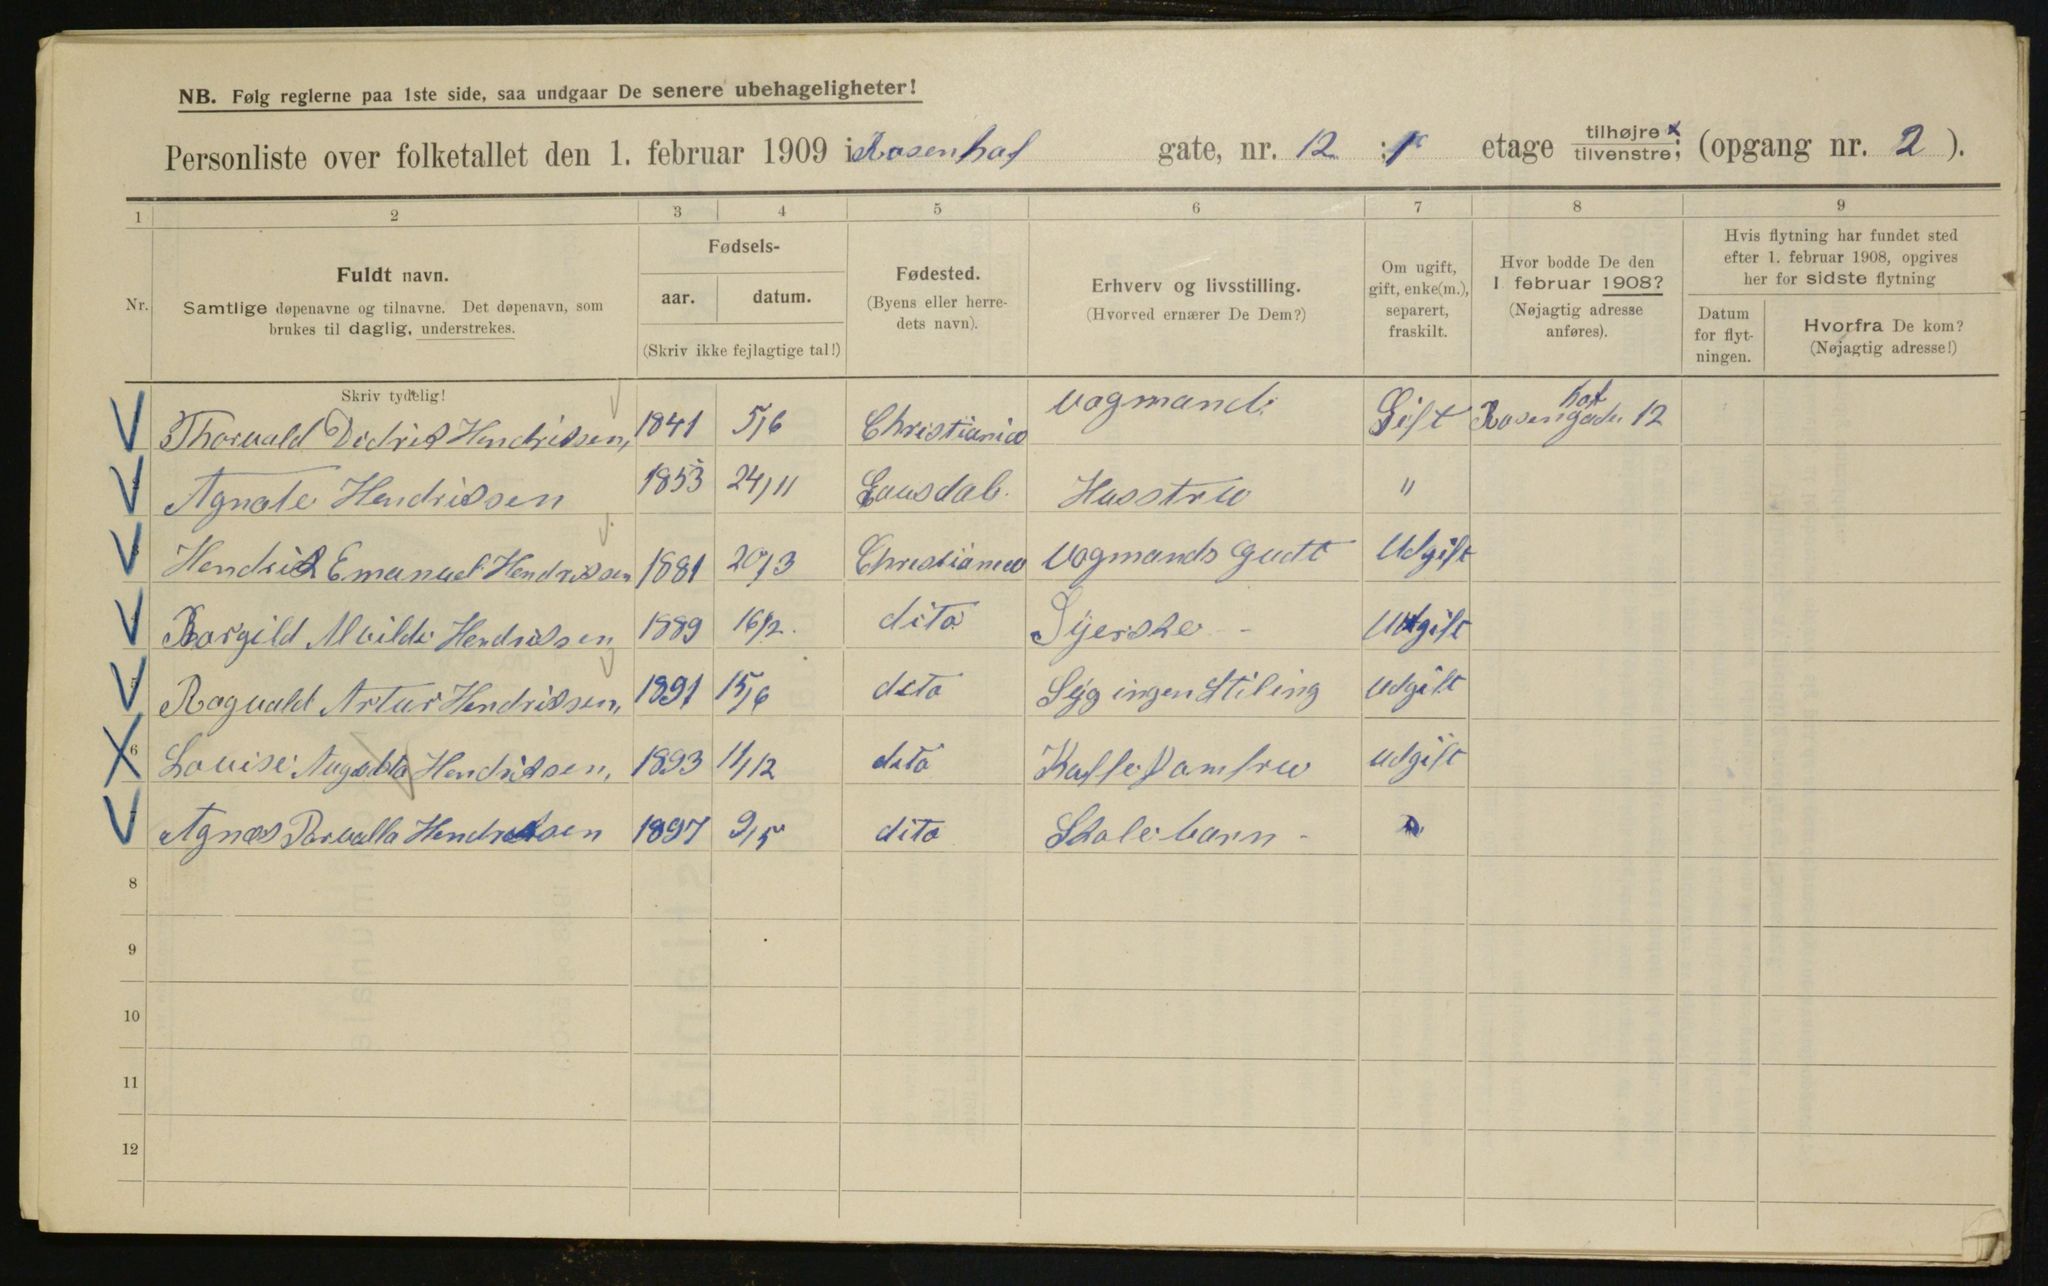 NB. Følg reglerne paa 1ste side, saa undgaar De senere ubehageligheter!
Personliste over folketallet den 1. februar 1909 i Rosenhof gate, nr. 12 : 1 etage tilhøjre x tilvenstre; (opgang nr. 2 ).
1 2 3 4 5 6 7 8 9
Nr.
Fuldt navn.
Samtlige døpenavne og tilnavne. Det døpenavn, som
brukes til daglig, understrekes.
Skriv tydelig!
Fødsels-
aar. datum.
(Skriv ikke fejlagtige tal!)
Fødested.
(Byens eller herre-
dets navn).
Erhverv og livsstilling.
(Hvorved ernærer De Dem?)
Om ugift,
gift, enke(m.),
separert,
fraskilt.
Hvor bodde De den
1 februar 1908?
(Nøjagtig adresse
anføres).
Hvis flytning har fundet sted
efter 1. februar 1908, opgives
her for sidste flytning
Datum
for flyt-
ningen.
Hvorfra De kom?
(Nøjagtig adresse!)
Thorvald Didrik Hendriksen, 1841 5/6 Christiania Vogmand Gift Rosenhofgaden 12
Agnate Hendriksen 1853 24/11 Hustru "
Hendrik Emanuel Hendriksen 1881 20/3 Christiania Vogmands gudt Udgift
Borgild Mvilde Hendriksen 1889 16/2 dito Syerske - Udgift
5 Ragvald Artur Hendriksen, 1891 15/6 dito Syg ingen Stiling Udgift
6 Lovise Augusta Hendriksen, 1893 11/12 dito Udgift
Agnæs Hendriksen 1897 9/5 dito Skolebarn -
8
9
10
11
12